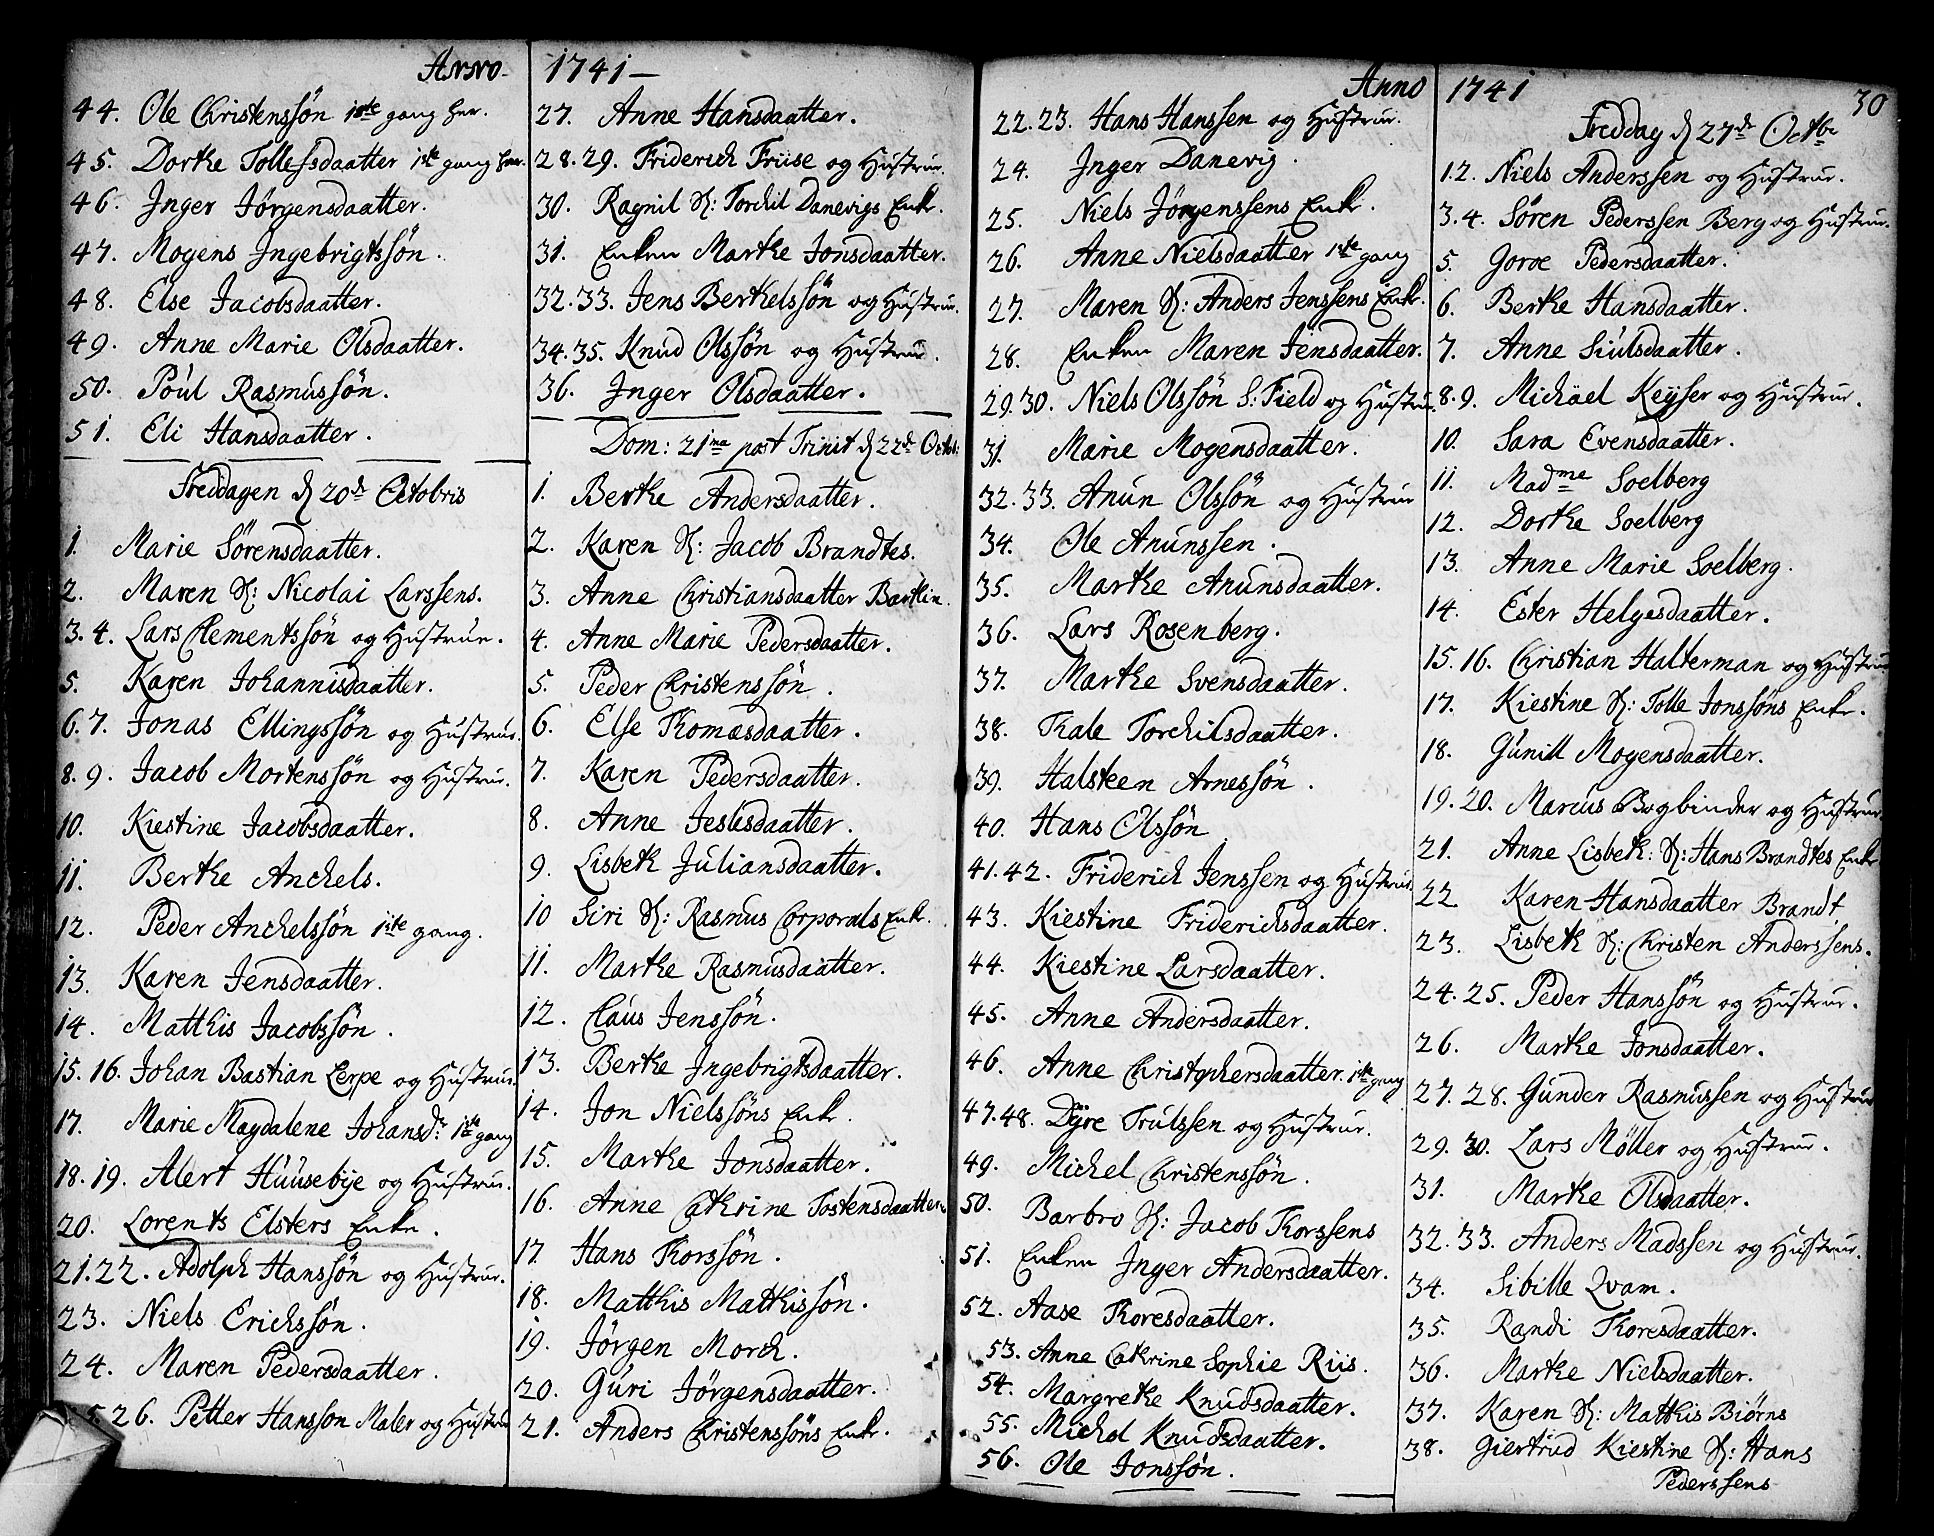 Anno 1741
44. Ole Christenssøn 1ste gang her.
45. Dorthe Tollefsdaatter 1ste gang her.
46. Inger Jørgensdaatter.
47. Mogens Ingebrigtssøn.
48. Else Jacobsdaatter.
49. Anne Marie Olsdaatter.
50. Poul Rasmussøn.
51. Eli Hansdaatter.
Freddagen d 20de Octobris
1. Marie Sørensdaatter.
2. Maren S: Nicolai Larssens.
3. 4. Lars Clementssøn og Hustrur.
5. Karen Johannisdaatter.
6. 7. Jonas Ellingssøn og Hustrur.
8. 9. Jacob Mortenssøn og Hustrur.
10. Kiestine Jacobsdaatter.
11. Berthe Anchels.
12. Peder Anchelssøn 1ste gang.
13. Karen Jensdaatter.
14. Matthis Jacobssøn.
15. 16. Johan Bastian Lerpe og Hustrur.
17. Marie Magdalene Johansdr 1ste gang
18. 19. Alert Huusebye og Hustrur.
20. Lorents Elsters Enke.
21. 22. Adolph Hanssøn og Hustrur.
23. Niels Erichssøn.
24. Maren Pedersdaatter.
26. Petter Hansson Maler og Hustrur
27. Anne Hansdaatter.
28. 29. Friderich Friise og Hustrur.
30. Ragnil S: Torchil Danevigs Enke.
31. Enken Marthe Jonsdaatter.
32. 33. Jens Berthelssøn og Hustrur.
34. 35. Knud Olssøn og Hustrur.
36. Inger Olsdaatter.
Dom: 21ma post Trinit d 22de Octob:
1. Berthe Andersdaatter.
2. Karen S: Jacob Brandtes.
3. Anne Christiansdaatter Barthin.
4. Anne Marie Pedersdaatter.
5. Peder Christenssøn.
6. Else Thomæsdaatter.
7. Karen Pedersdaatter.
8. Anne Jeslesdaatter.
9. Lisbeth Juliansdaatter.
10 Siri S: Rasmus Corporals Enke.
11. Marthe Rasmusdaatter.
12. Claus Jenssøn.
13. Berthe Ingebrigtsdaatter.
14. Jon Nielssøns Enke.
15. Marthe Jonsdaatter.
16. Anne Cathrine Tostensdaatter.
17 Hans Thorssøn.
18. Matthis Matthissøn.
19. Jørgen Morch.
20. Guri Jørgensdaatter.
21. Anders Christenssøns Enke.
Anno 1741
30
22. 23. Hans Hanssen og Hustrur.
24. Inger Danevig.
25. Niels Jørgenssens Enke.
26. Anne Nielsdaatter 1ste gang
27. Maren S: Anders Jenssens Enke.
28. Enken Maren Jensdaatter.
29. 30. Niels Olssøn S: Field og Hustrur.
31. Marie Mogensdaatter.
32. 33. Anun Olssøn og Hustrur
34. Ole Anunssen.
35. Marthe Anunsdaatter.
36. Lars Rosenberg.
37. Marthe Svensdaatter.
38. Thale Torchilsdaatter.
39. Halsteen Arnessøn.
40. Hans Olssøn
41. 42. Friderich Jenssen og Hustrur.
43. Kiestine Friderichsdaatter.
44. Kiestine Larsdaatter.
45. Anne Andersdaatter.
46. Anne Christophersdaatter. 1ste gang
47. 48. Dyre Trulssen og Hustrur.
49. Michel Christenssøn.
50. Barbro S: Jacob Thorssens
51. Enken Inger Andersdaatter.
52. Aase Thoresdaatter.
53. Anne Cathrine Sophie Riis.
54. Margrethe Knudsdaatter.
55. Michel Knudsdaatter.
56. Ole Jonssøn.
Freddag d 27de Octbr
1 2. Niels Anderssen og Hustrur.
3. 4. Søren Pederssen Berg og Hustrur.
5. Goroe Pedersdaatter.
6. Berthe Hansdaatter.
7. Anne Siulsdaatter.
8. 9. Michael Keyser og Hustrur.
10. Sara Evensdaatter.
11. Madme Soelberg
12. Dorthe Soelberg
13. Anne Marie Soelberg.
14. Ester Helgesdaatter.
15. 16. Christian Halterman og Hustrur
17. Kiestine S: Tolle Jonssøns Enke.
18. Gunill Mogensdaatter.
19. 20. Marcus Bogbinder og Hustrur
21. Anne Lisbeth: S: Hans Brandtes Enke
22 Karen Hansdaatter Brandt
23. Lisbeth S: Christen Anderssens.
24. 25. Peder Hanssøn og Hustrur.
26. Marthe Jonsdaatter.
27. 28. Gunder Rasmussen og Hustrur
29. 30. Lars Møller og Hustrur.
31. Marthe Olsdaatter.
32. 33. Anders Madssen og Hustrur.
34. Sibille Qvam.
35. Randi Thoresdaatter.
36. Marthe Nielsdaatter.
37. Karen S: Matthis Biørns
38. Giertrud Kiestine S: Hans
Pederssens